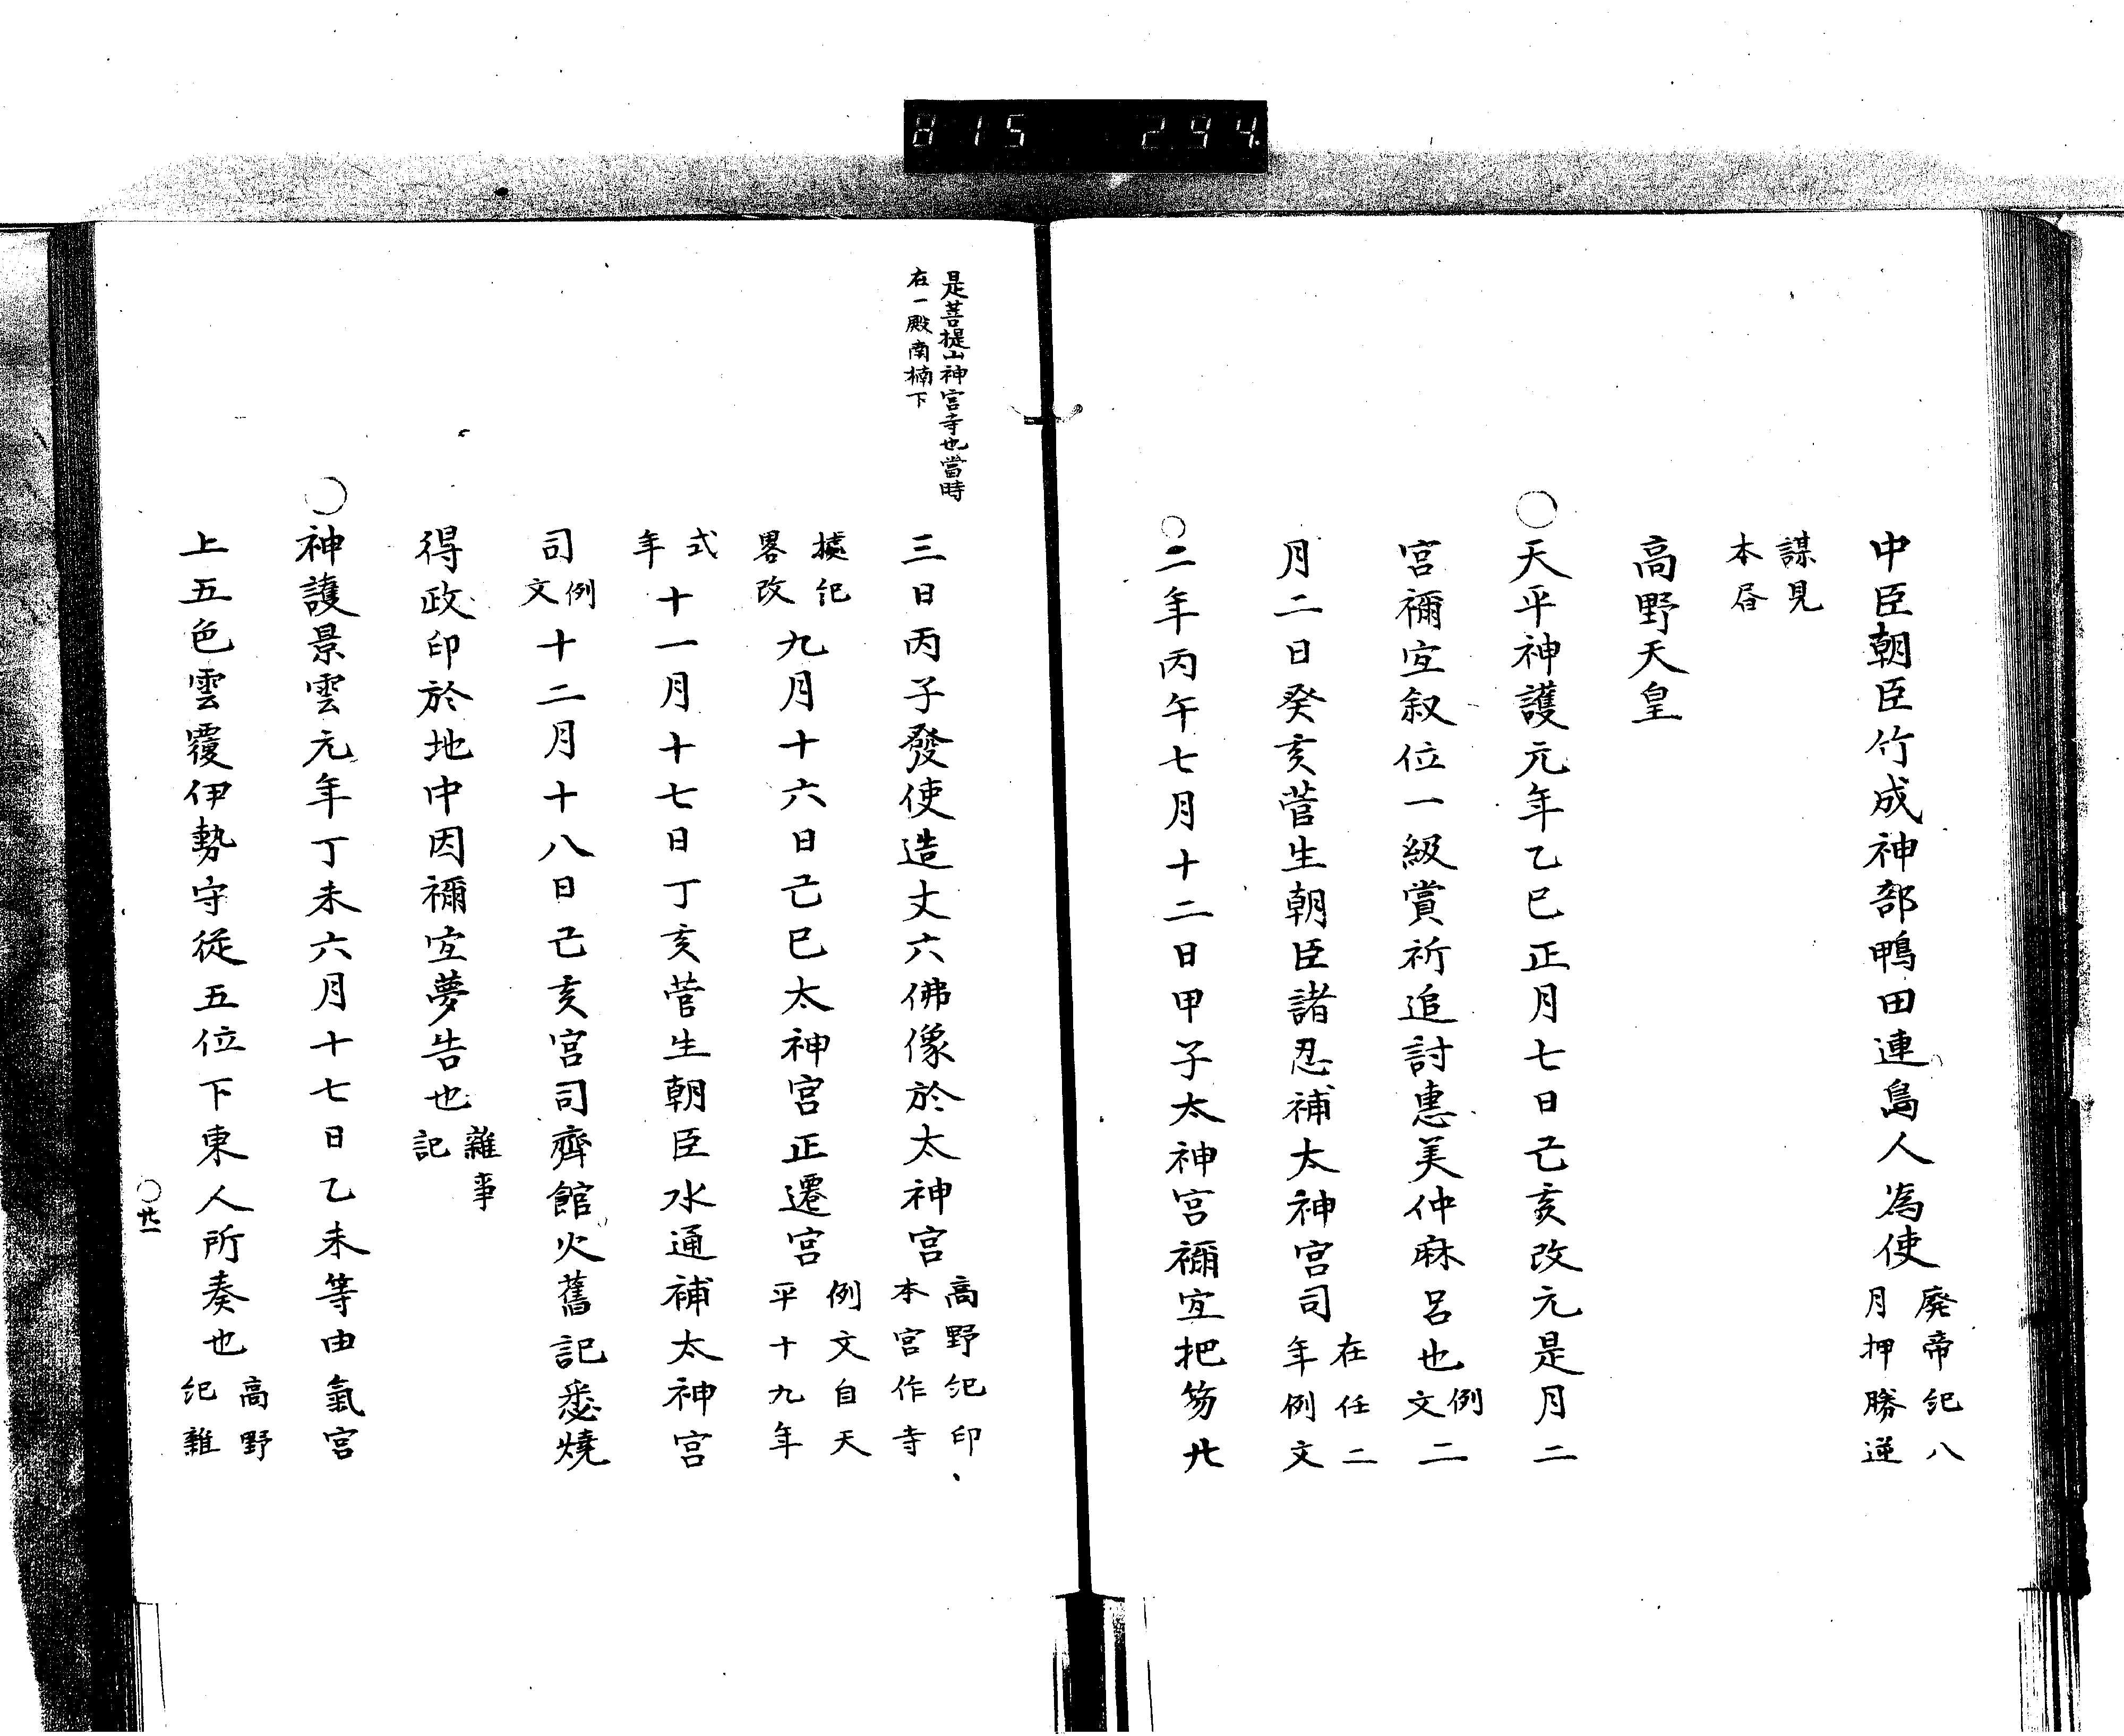 815 294
中臣朝臣竹成神部鴨田連島人為使
廃帝紀八
月押勝逆
謀見
本㫺
高野天皇
○天平神護元年乙巳正月七日己亥改元是月二
宮禰宜叙位一級賞祈追討惠美仲麻呂也
例
文
二
月二日癸亥菅生朝臣諸忍補太神宮司
在任二
年例文
○二年丙午七月十二日甲子太神宮禰宜把笏廿
是菩提山神宮寺也當時
在一殿南楠下
三日丙子發使造丈六佛像於太神宮
高野紀印、
本宮作寺
據紀
畧改
九月十六日己巳太神宮正遷宮
例文自天
平十九年
式
年
十一月十七日丁亥菅生朝臣水通補太神宮
司
例
文
十二月十八日己亥宮司齊館火舊記悉燒
得政印於地中因禰宜夢告也
雜事
記
○神護景雲元年丁未六月十七日乙未等由氣宮
上五色雲覆伊勢守從五位下東人所奏也
高野
紀雜
○廿一